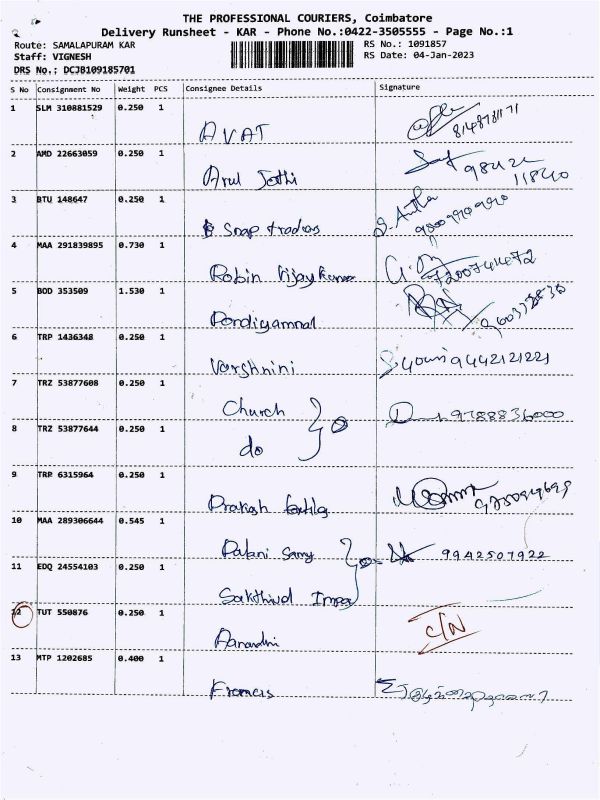 THE PROFESSIONAL COURIERS, Coimbatore
Delivery Runsheet - KAR - Phone No.:0422-3505555 - Page No.:1
Route: SAMALAPURAM KAR RS No.: 1091857
Staff: VIGNESH RS Date: 04-Jan-2023
DRS No.: DCJB109185701
S No Consignment No Weight PCS Consignee Details Signature
1 SLM 310881529 0.250 1
AVAT
2 AMD 22663059 0.250 1
Arul Jothi 98422
11840
3 BTU 148647 0.250 1
Snap tradios
4 MAA 291839895 0.730 1
Robin Vijaykumar 7200741472
5 BOD 353509 1.530 1
6 TRP 1436348 0.250 1
Varshnini 9442121221
7 TRZ 53877608 0.250 1
Church 9788836000
8 TRZ 53877644 0.250 1
do
9 TRP 6315964 0.250 1
10 MAA 289306644 0.545 1
Palani Samy 9942507922
11 EDQ 24554103 0.250 1
Sakthivel Impex
12 TUT 550876 0.250 1
C/N
13 MTP 1202685 0.400 1
Francis